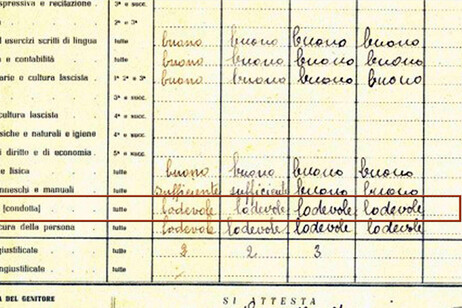 pressiva e recitazione . 2ª e succ.
3ª e succ.
ed esercizi scritti di lingua tutte buono buono buono buono
e contabilità tutte buono buono buono buono
arie e cultura fascista 1ª 2ª e 3ª buono buono buono buono
3ª e succ.
cultura fascista 4ª e succ.
siche e naturali e igiene 4ª e succ.
di diritto e di economia . 5ª e succ.
e fisica tutte buono buono buono buono
nneschi e manuali tutte sufficiente sufficiente buono buono
[condotta] tutte lodevole lodevole lodevole lodevole
cura della persona tutte lodevole lodevole lodevole lodevole
giustificate tutte 2 3
ngiustificate tutte
A DEL GENITORE SI ATTESTA